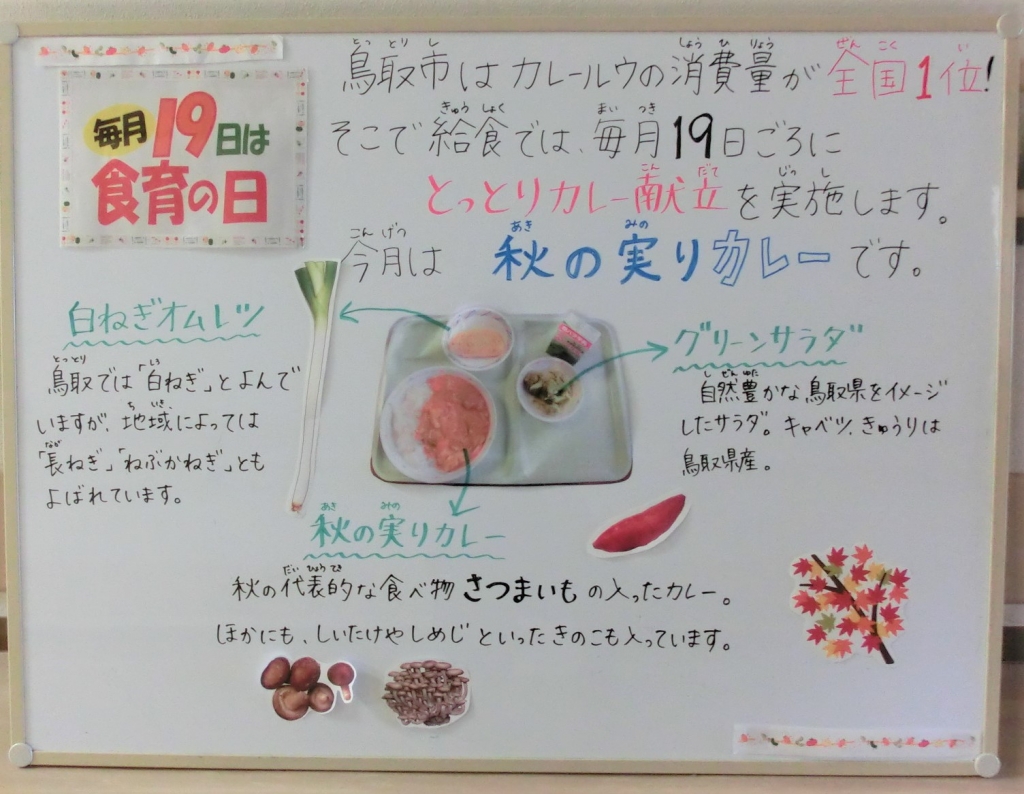 毎月19日は
食育の日
鳥取市はカレールウの消費量が全国1位!
そこで給食では、毎月19日ごろに
とっとりカレー献立を実施します。
今月は 秋の実りカレーです。
白ねぎオムレツ
鳥取では「白ねぎ」とよんで
いますが、地域によっては
「長ねぎ」「ねぶかねぎ」とも
よばれています。
グリーンサラダ
自然豊かな鳥取県をイメージ
したサラダ。キャベツ、きゅうりは
鳥取県産。
秋の実りカレー
秋の代表的な食べ物さつまいもの入ったカレー。
ほかにも、しいたけやしめじといったきのこも入っています。